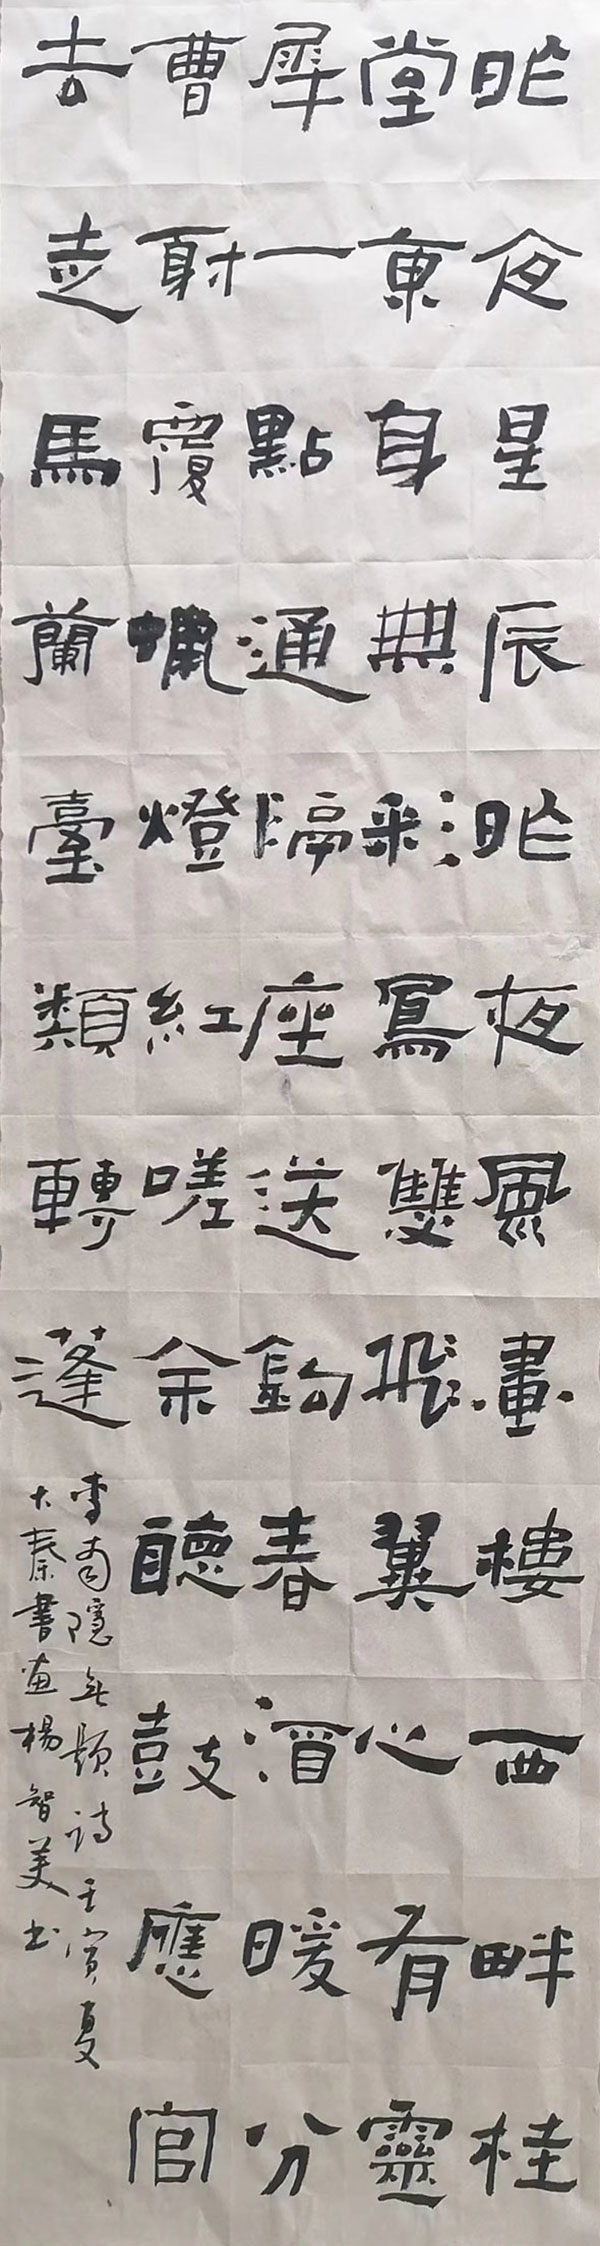 昨夜星辰昨夜風畫樓西畔桂
堂東身無彩鳳雙飛翼心有靈
犀一點通隔座送鈎春酒暖分
曹射覆蠟燈紅嗟余聽鼓應官
去走馬蘭臺類轉蓬
李商隱無題詩壬寅夏
大秦書画楊智美书